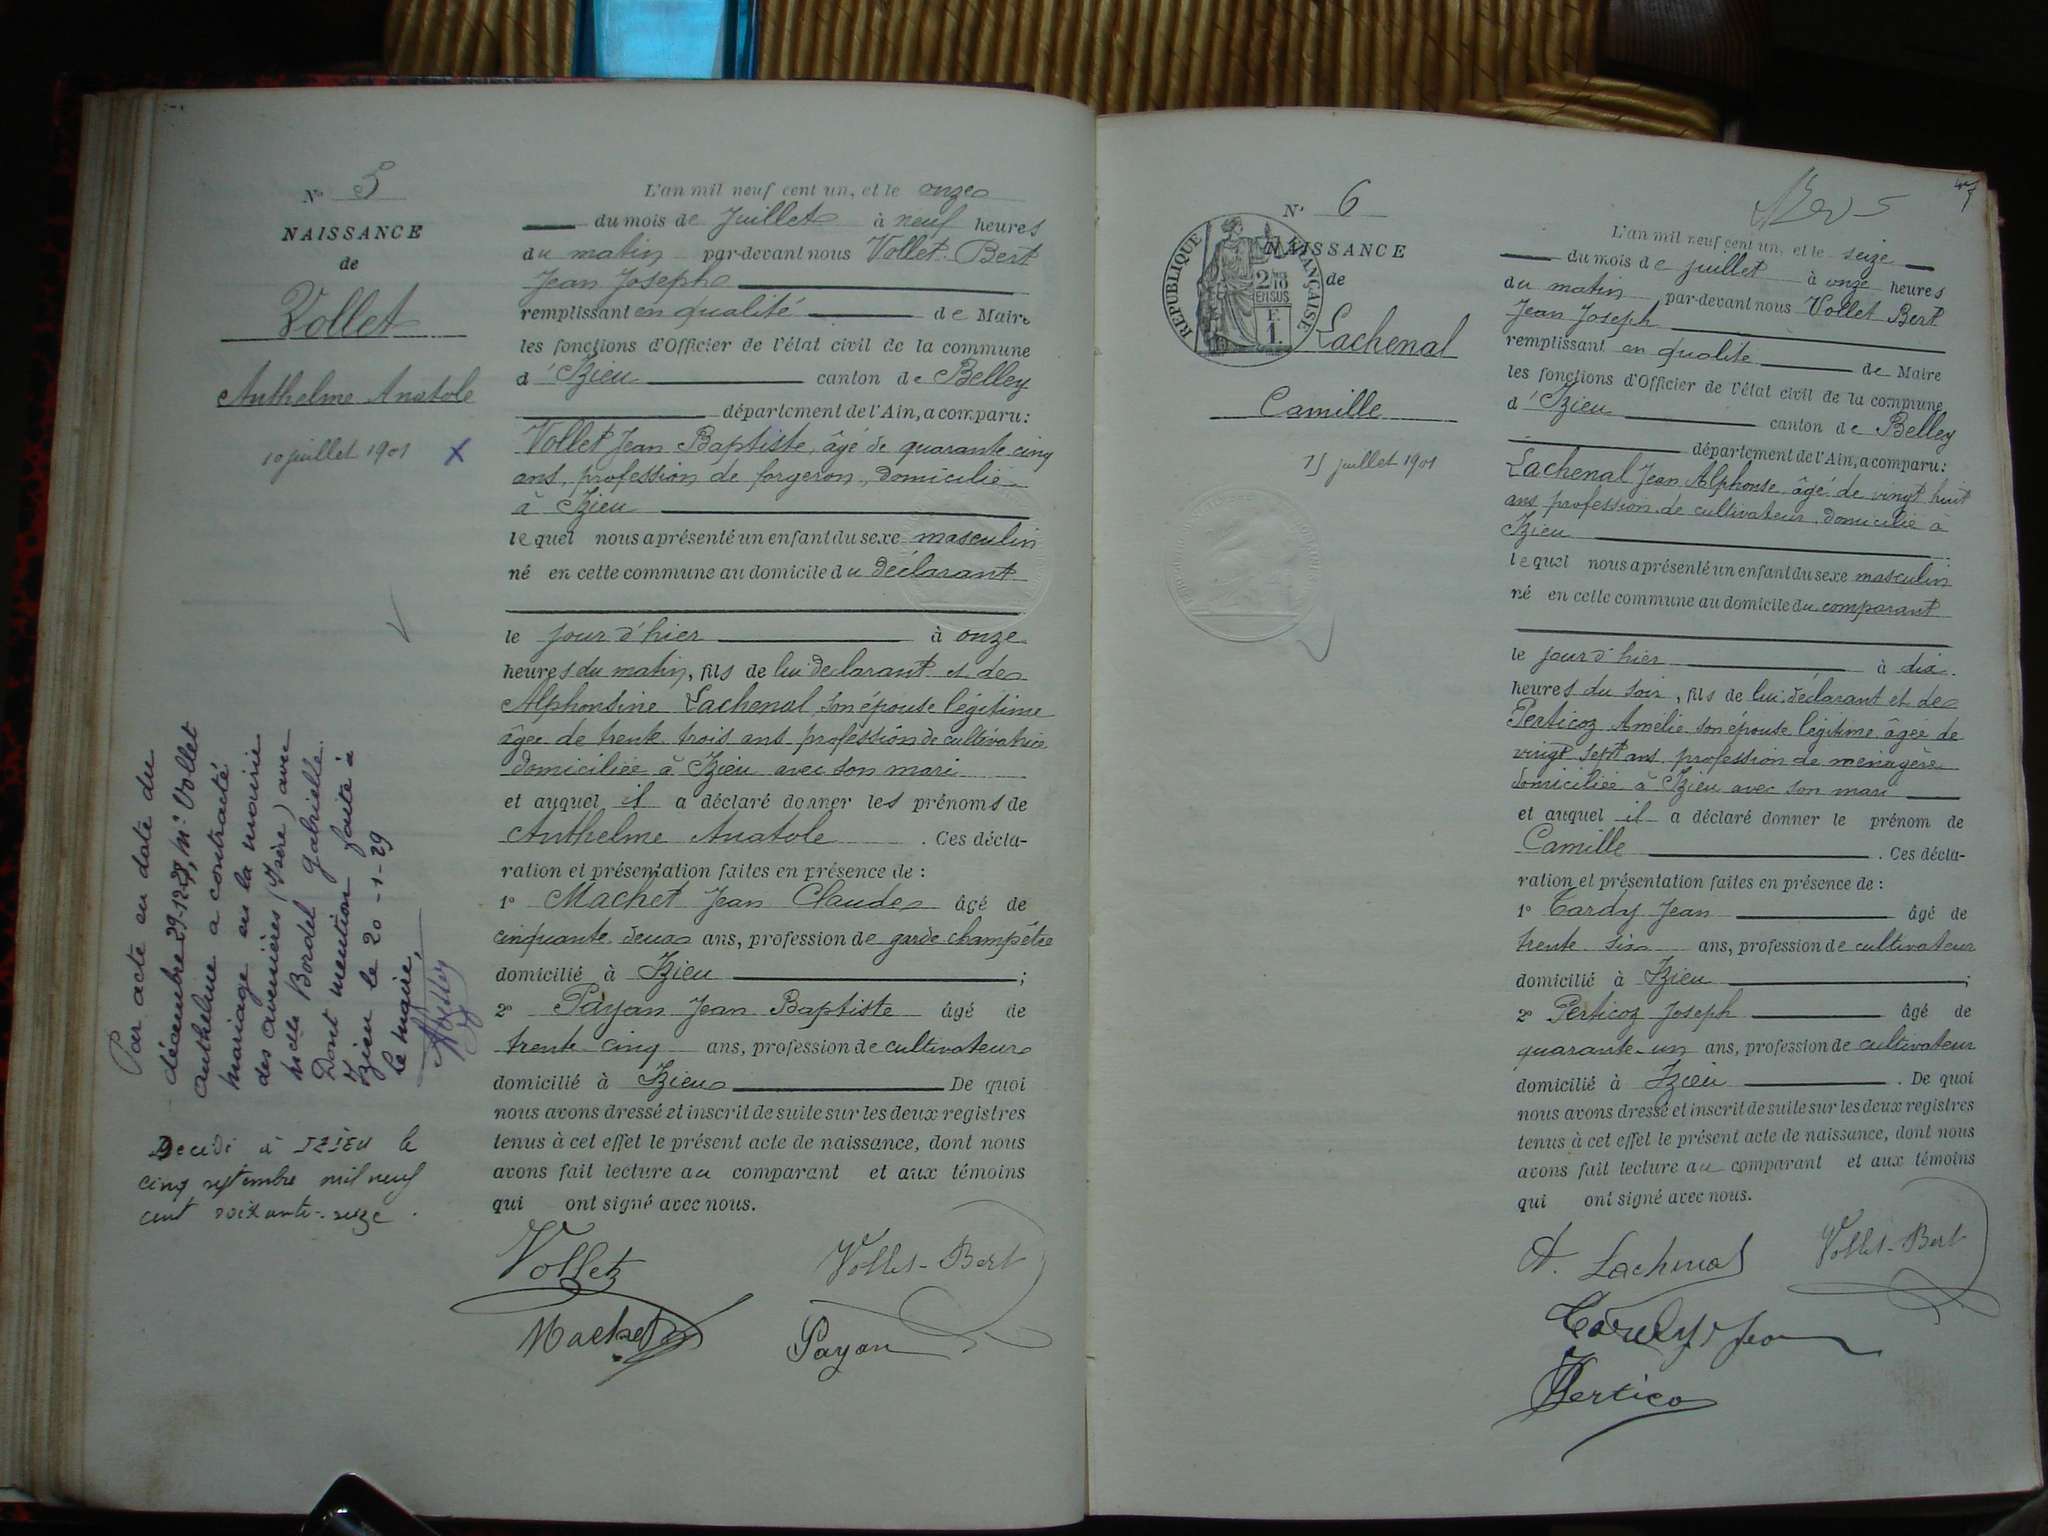 N° 5
NAISSANCE
de
Vollet
Anthelme Anatole
10 juillet 1901
L'an mil neuf cent un, et le onze
du mois de Juillet à neuf heures
du matin par-devant nous Vollet-Bert
Jean Joseph
remplissant en qualité de Maire
les fonctions d'Officier de l'état civil de la commune
d'Izieu canton de Belley
département de l'Ain, a comparu:
Vollet Jean Baptiste, âgé de quarante cinq
ans, profession de forgeron, domicilié
à Izieu
lequel nous a présenté un enfant du sexe masculin
né en cette commune au domicile du déclarant
le jour d'hier à onze
heures du matin, fils de lui déclarant et de
Alphonsine Lachenal, son épouse légitime
âgée de trente trois ans, profession de cultivatrice
domiciliée à Izieu avec son mari
et auquel il a déclaré donner les prénoms de
Anthelme Anatole. Ces décla-
ration et présentation faites en présence de:
1° Machet Jean Claude âgé de
cinquante deux ans, profession de garde champêtre
domicilié à Izieu;
2° Payan Jean Baptiste âgé de
trente-cinq ans, profession de cultivateur
domicilié à Izieu De quoi
nous avons dressé et inscrit de suite sur les deux registres
tenus à cet effet le présent acte de naissance, dont nous
avons fait lecture au comparant et aux témoins
qui ont signé avec nous.
Vollet
Vollet-Bert
Machet
Payan
Par acte en date du
décembre 29-12-28, Mr Vollet
Anthelme a contracté
mariage en la mairie
des avenières (Isère) avec
Melle Bordel Gabrielle.
Dont mention faite à
Izieu le 20-1-29
le maire,
Décédé à IZIEU le
cinq septembre mil neuf
cent soixante-seize.
47
N° 6
NAISSANCE
de
RÉPUBLIQUE FRANÇAISE
2/10 EN SUS
1 F.
Lachenal
Camille
15 juillet 1901
L'an mil neuf cent un, et le seize
du mois de juillet à onze heures
du matin par-devant nous Vollet Bert
Jean Joseph
remplissant en qualité de Maire
les fonctions d'Officier de l'état civil de la commune
d'Izieu canton de Belley
département de l'Ain, a comparu:
Lachenal Jean Alphonse, âgé de vingt huit
ans profession de cultivateur domicilié à
Izieu
lequel nous a présenté un enfant du sexe masculin
né en cette commune au domicile du comparant
le jour d'hier à dix
heures du soir, fils de lui déclarant et de
Perticoz Amélie son épouse légitime âgée de
vingt sept ans, profession de ménagère
domiciliée à Izieu avec son mari
et auquel il a déclaré donner le prénom de
Camille. Ces décla-
ration et présentation faites en présence de:
1° Tardy Jean âgé de
trente six ans, profession de cultivateur
domicilié à Izieu;
2° Perticoz Joseph âgé de
quarante-un ans, profession de cultivateur
domicilié à Izieu. De quoi
nous avons dressé et inscrit de suite sur les deux registres
tenus à cet effet le présent acte de naissance, dont nous
avons fait lecture au comparant et aux témoins
qui ont signé avec nous.
A. Lachenal
Vollet-Bert
Tardy Jean
Pertico